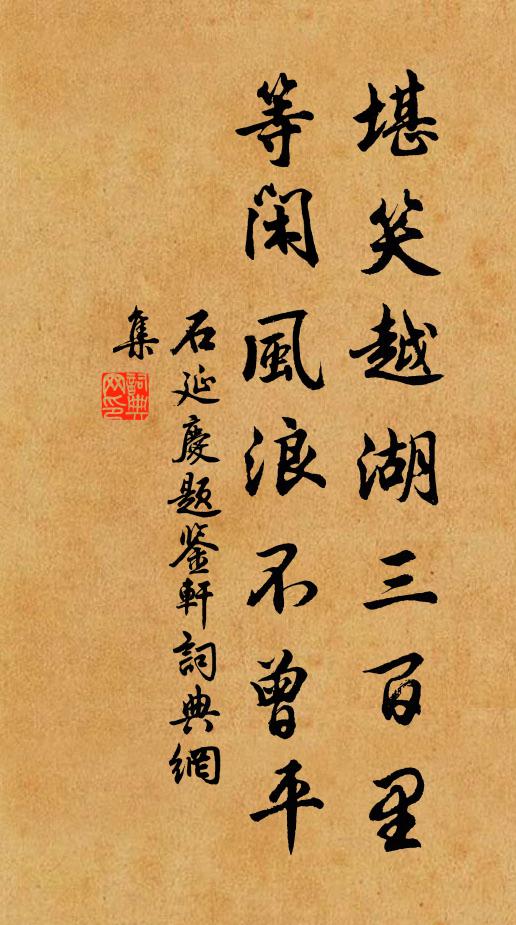 堪笑越湖三百里
等闲風浪不曾平
石延慶题鉴軒詞典網
集
詞典網印